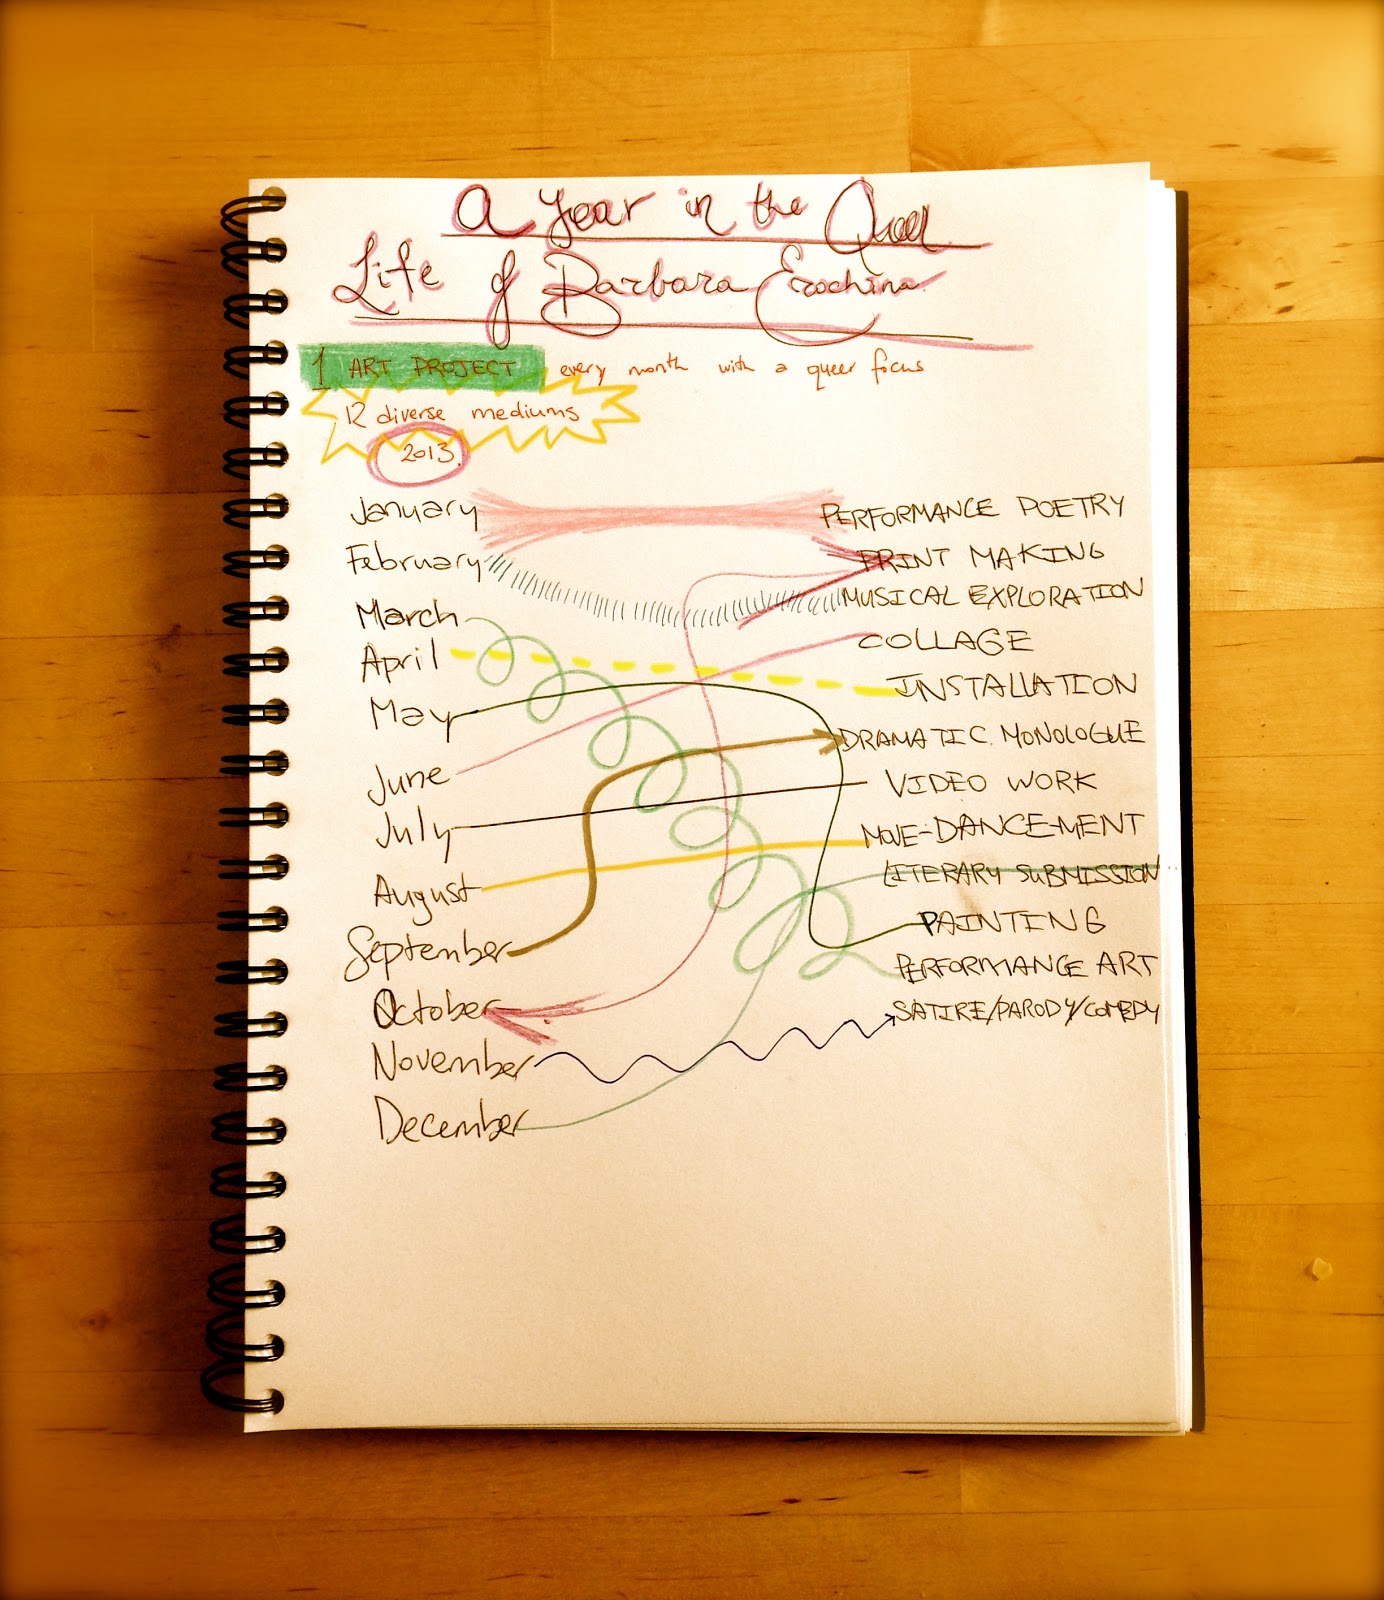 A Year in the Queer
Life of Barbara Erochina
1 ART PROJECT every month with a queer focus
12 diverse mediums
2013
January PERFORMANCE POETRY
February PRINT MAKING
March MUSICAL EXPLORATION
April COLLAGE
May INSTALLATION
June DRAMATIC MONOLOGUE
July VIDEO WORK
August MOVE-DANCE-MENT
September LITERARY SUBMISSION
October PAINTING
November PERFORMANCE ART
December SATIRE/PARODY/COMEDY